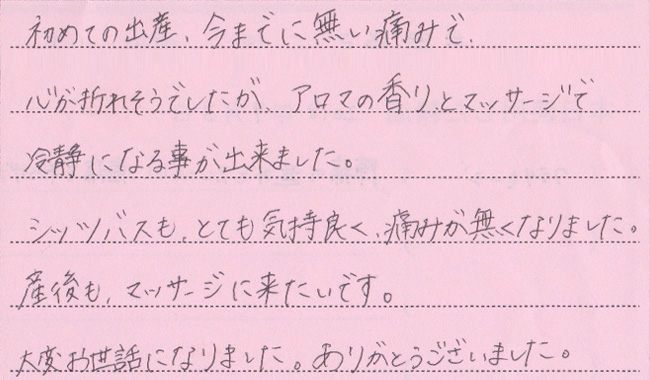 初めての出産、今までに無い痛みで、
心が折れそうでしたが、アロマの香りとマッサージで
冷静になる事が出来ました。
シッツバスも、とても気持良く、痛みが無くなりました。
産後も、マッサージに来たいです。
大変お世話になりました。ありがとうございました。